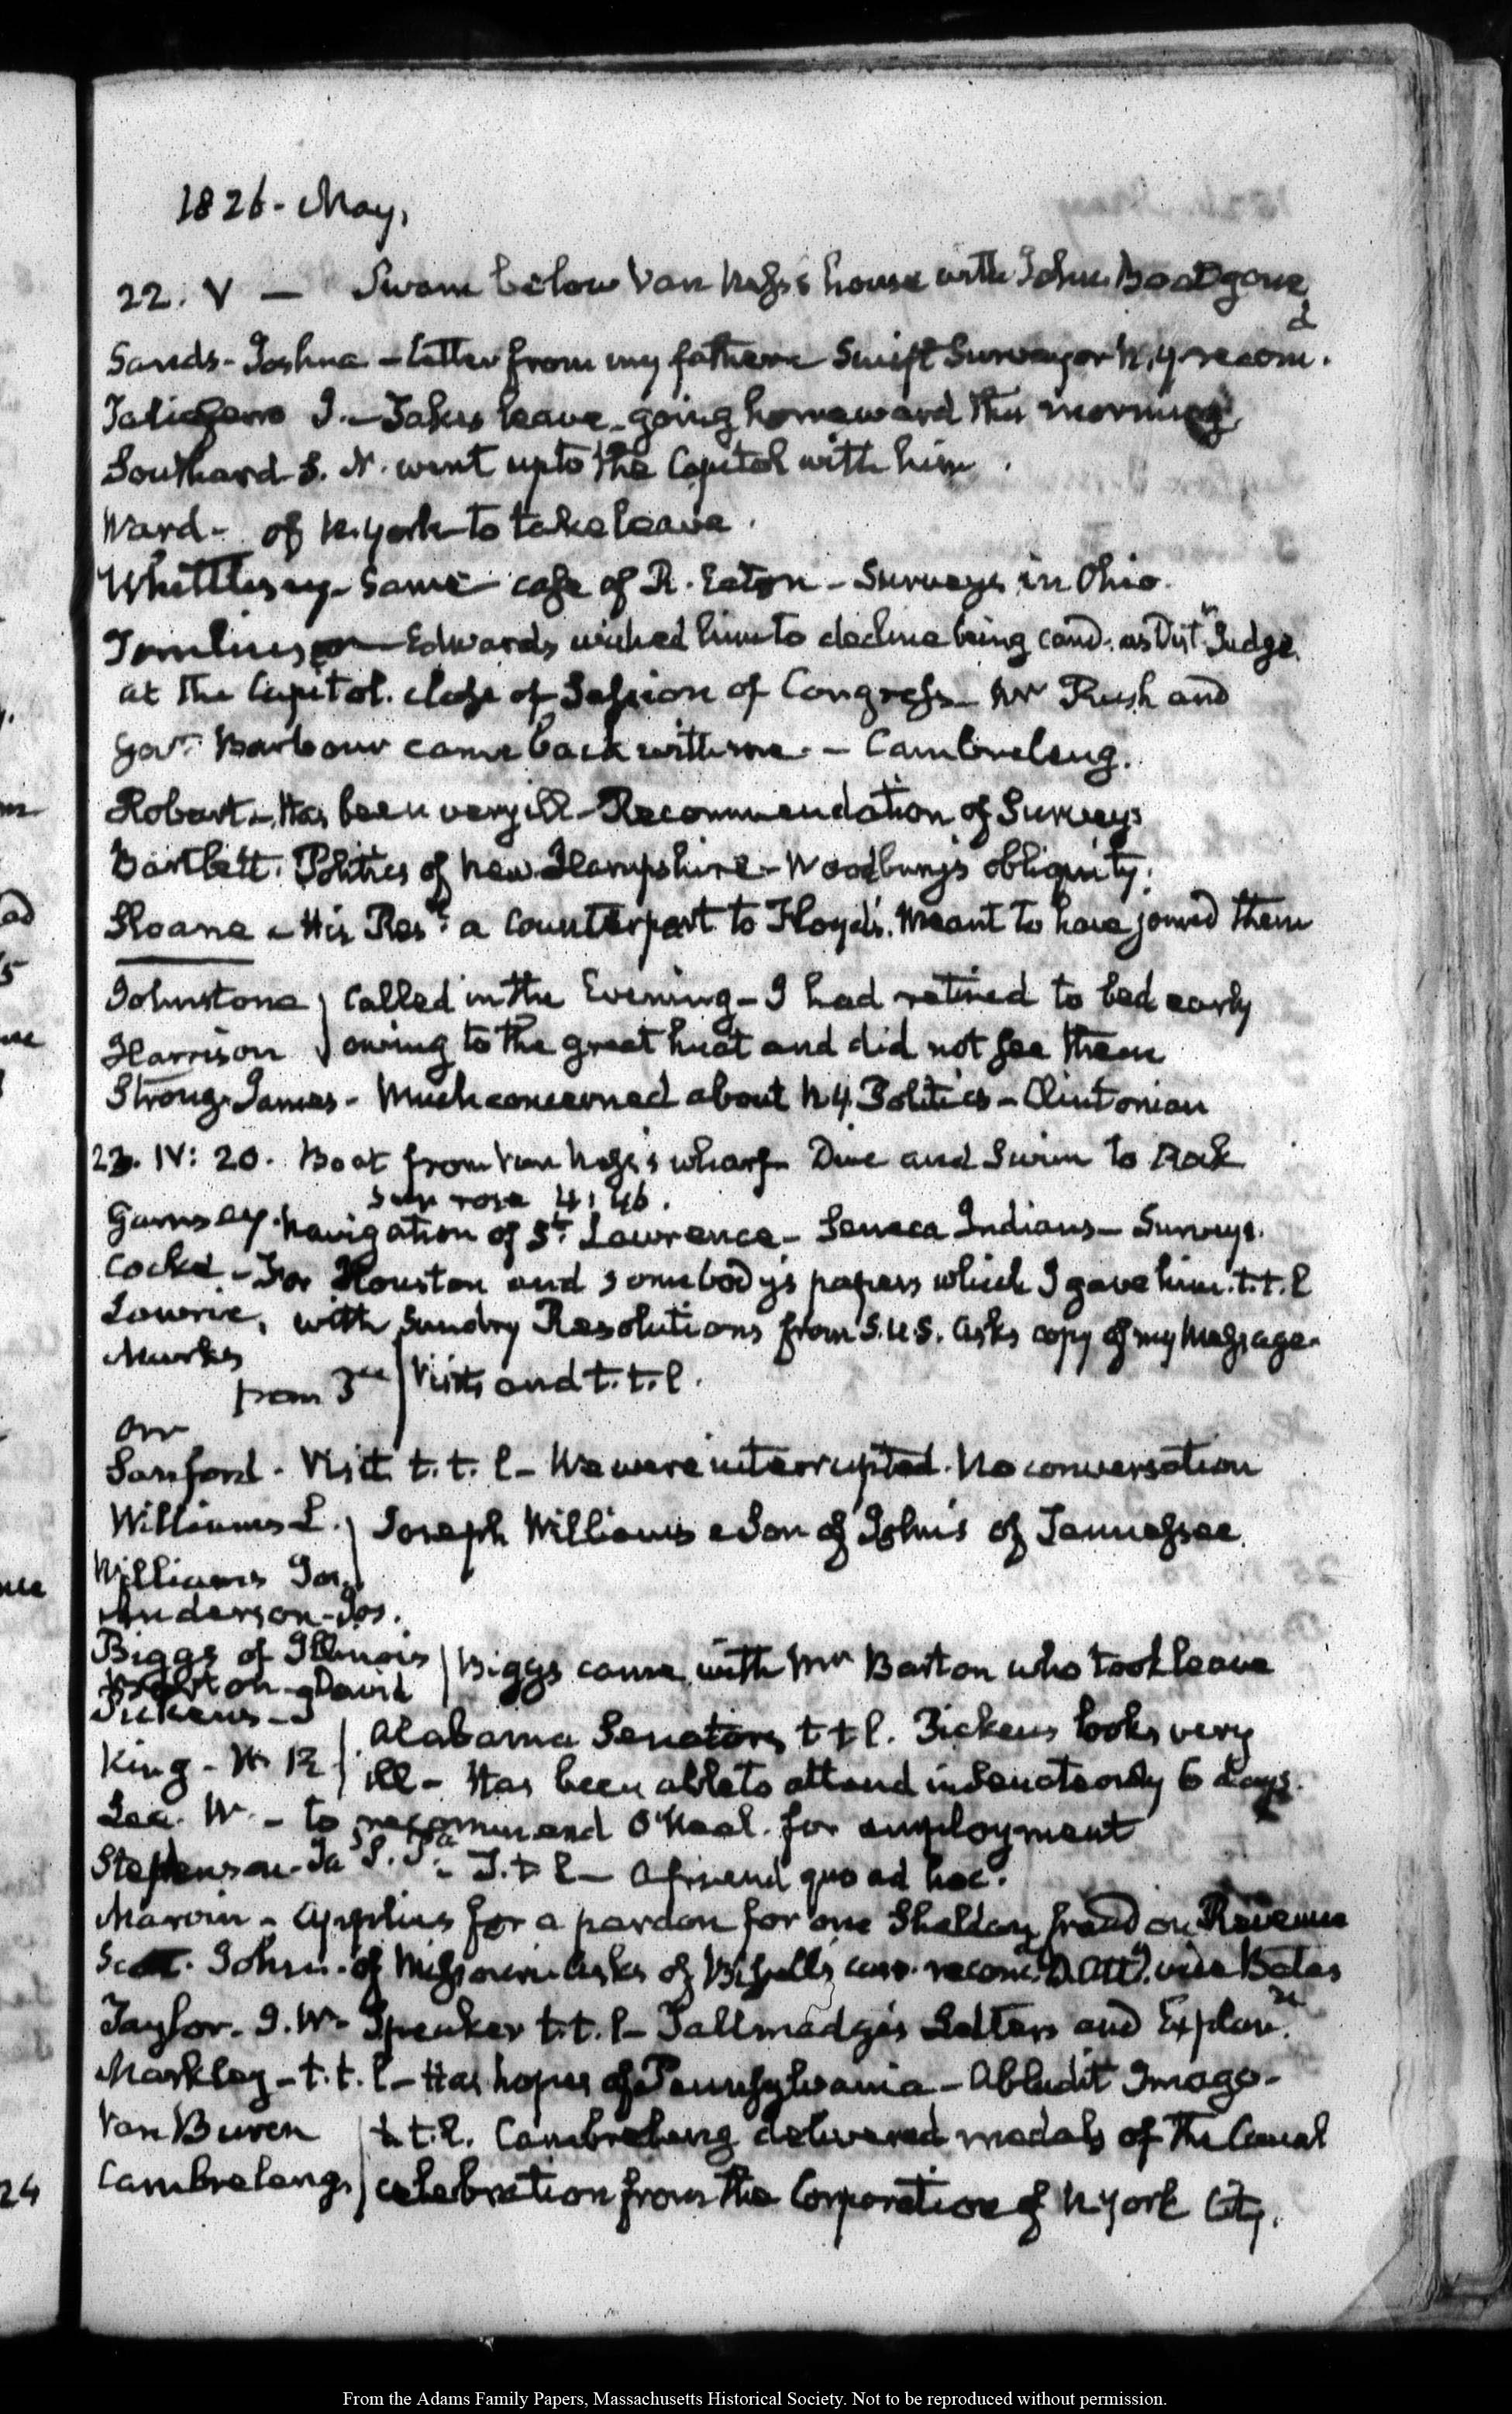 1826. May,
22. V — Swam below Van Ness's house with John. Boat gone
Sands. Joshua — Letter from my father Swift Surveyor N.Y. recomd.
J. — Takes leave going homeward this morning
Southard S. N. went up to the Capitol with him.
Ward — of N. York to take leave.
Whittlesey — Same case of R. Eaton — Surveys in Ohio.
Tomlinson — Edwards wished him to decline being cand. as Distt. Judge.
at the Capitol. close of Session of Congress — Mr Rush and
Govr. Barbour came back with me. — Cambreleng.
Robert — Has been very ill — Recommendation of Surveys
Bartlett. Politics of New-Hampshire — Woodbury's obliquity.
Sloane — His Resn. a Counterpart to Floyd's. Meant to have joined them
Johnstone } Called in the Evening — I had retired to bed early
Harrison } owing to the great heat and did not see them
Strong. James — Much concerned about N.Y. Politics — Clintonian
23. IV: 20. Boat from Van Ness's wharf. Dive and Swim to Rock
Sun rose 4:46.
Garnsey. Navigation of St. Lawrence — Seneca Indians — Surveys.
Cocke — For Houston and somebody's papers which I gave him. t.t.l
Lowrie, with sundry Resolutions from S.U.S. asks copy of my Message
Marks
from } Visits and t.t.l.
Orr
Sanford. Visit t.t.l — We were interrupted. No conversation
Williams L. } Joseph Williams a Son of John's of Tennessee.
Williams Jos.
Anderson — Jos.
Biggs of Illinois } Biggs came with Mr Barton who took leave
Barton — David
Pickens — I
King — W R } Alabama Senators t t l. Pickens looks very
ill — Has been able to attend in Senate only 6 days.
Lee. W. — to recommend O'Neal for employment
Stephenson Jas S. Pa. — T.t l — A friend quo ad hoc.
Marvin — applies for a pardon for one Sheldon fraud on Revenue
Scott. John. of Missouri asks of Bissell's case. recomds D. Atty. vice Bates
Taylor. J. W. Speaker t.t.l — Tallmadge's Letters and Explann.
Markley — t.t.l — Has hopes of Pennsylvania — Abludit Imago.
Van Buren } t.t.l. Cambreleng delivered medals of the Canal
Cambreleng } celebration from the Corporation of N York City.
From the Adams Family Papers, Massachusetts Historical Society. Not to be reproduced without permission.